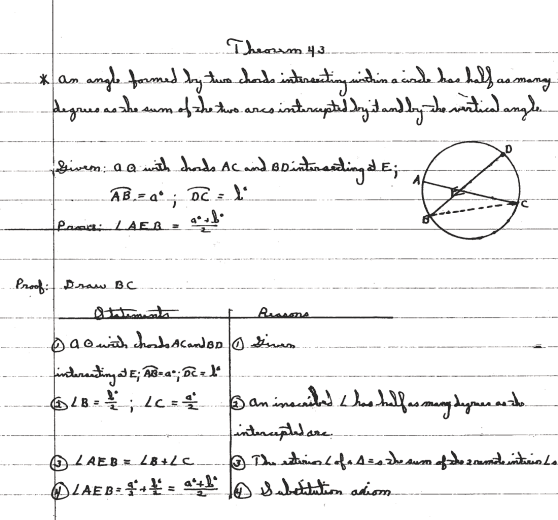 Theorem 43
* An angle formed by two chords intersecting within a circle has half as many
degrees as the sum of the two arcs intercepted by it and by the vertical angle.
Given: a ⊙ with chords AC and BD intersecting at E;
AB = a° ; DC = b°
Prove: ∠AEB = a°+b°/2
A
D
E
B
C
Proof: Draw BC
Statements Reasons
① a ⊙ with chords AC and BD ① Given
intersecting at E; AB=a°; DC=b°
② ∠B = b°/2 ; ∠C = a°/2 ② An inscribed ∠ has half as many degrees as its
intercepted arc.
③ ∠AEB = ∠B+∠C ③ The exterior ∠ of a Δ = s the sum of the 2 remote interior ∠s
④ ∠AEB = a°/2 + b°/2 = a°+b°/2 ④ Substitution axiom